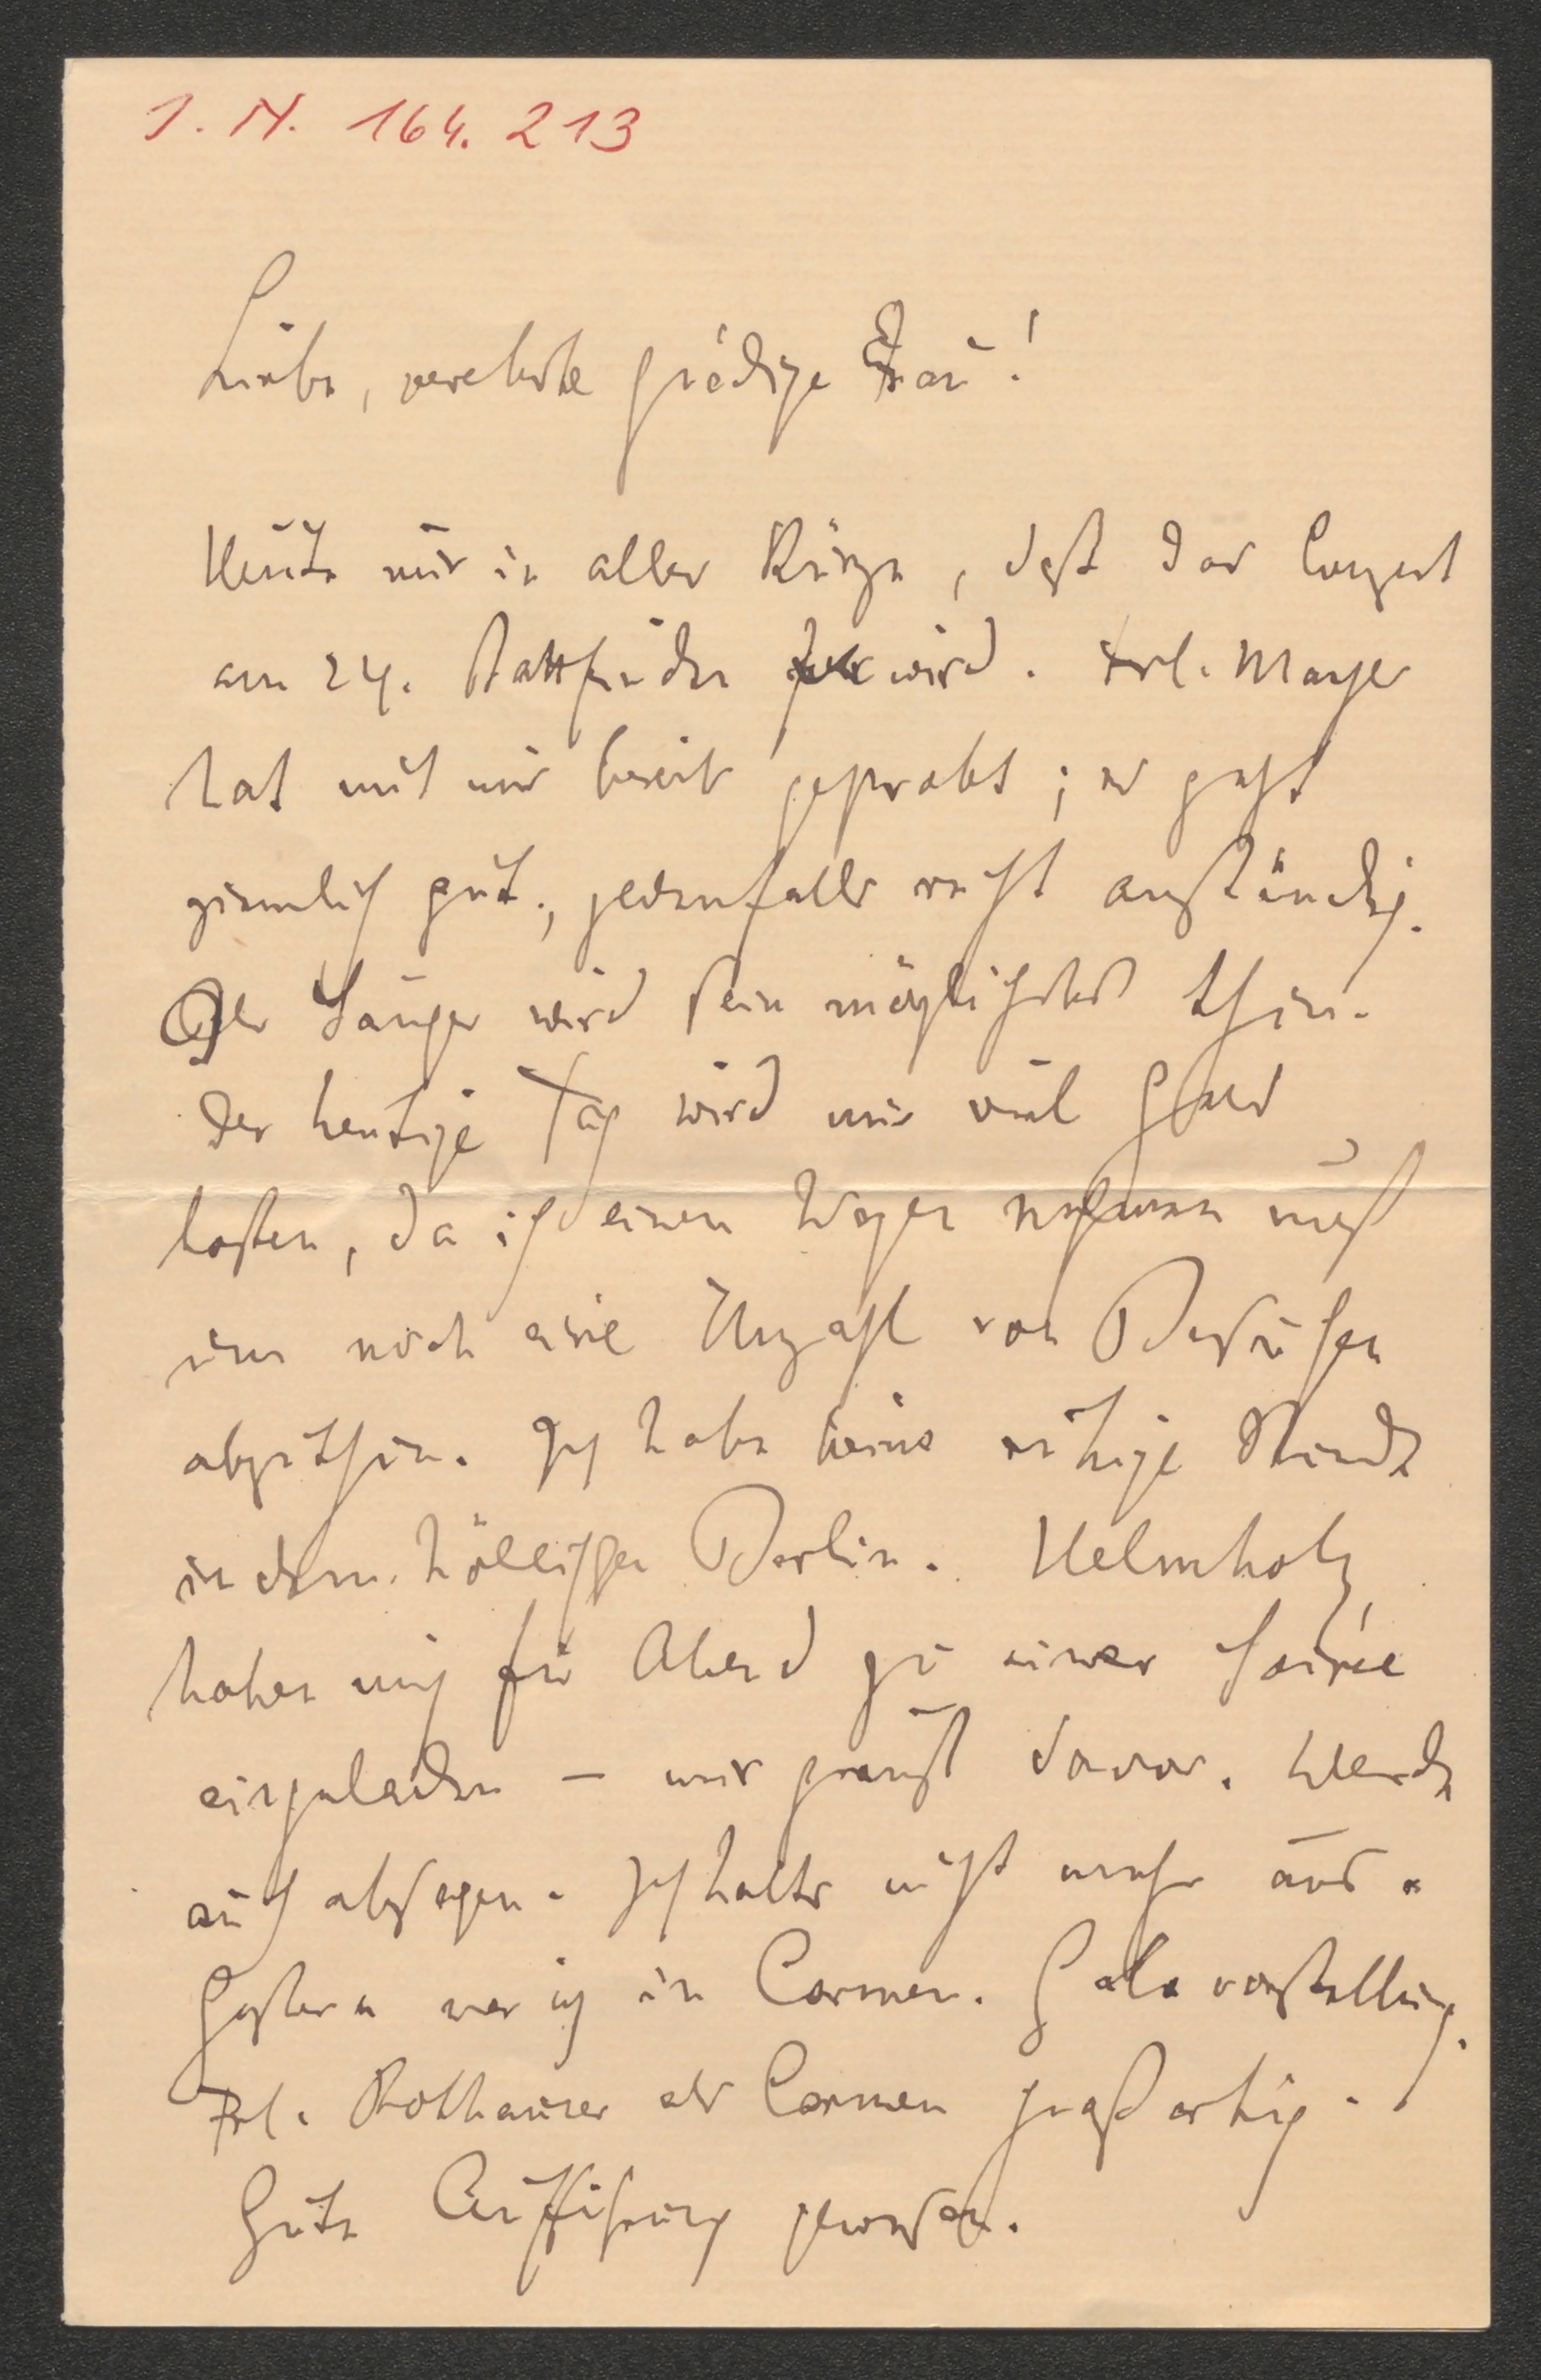 I. N. 164.213
Liebe, verehrte gnädige Frau!
Heute nur in aller Kürze, daß das Conzert
am 24. stattfinden wird. Frl. Mayer
hat mit mir bereits geprobt; es geht
ziemlich gut, jedenfalls recht anständig.
Der Sänger wird sein möglichstes thun.
Der heutige Tag wird mir viel Geld
kosten, da ich einen Wagen nehmen muß
um noch eine Unzahl von Besuchen
abzuthun. Ich habe keine ruhige Stunde
in dem höllischen Berlin. Helmholz
haben mich für Abend zu einer Soirée
eingeladen – mir graust davor. Werde
auch absagen. Ich halts nicht mehr aus.
Gestern war ich in Carmen. Galavorstellung.
Frl. Rothauser als Carmen großartig.
Gute Aufführung gewesen.